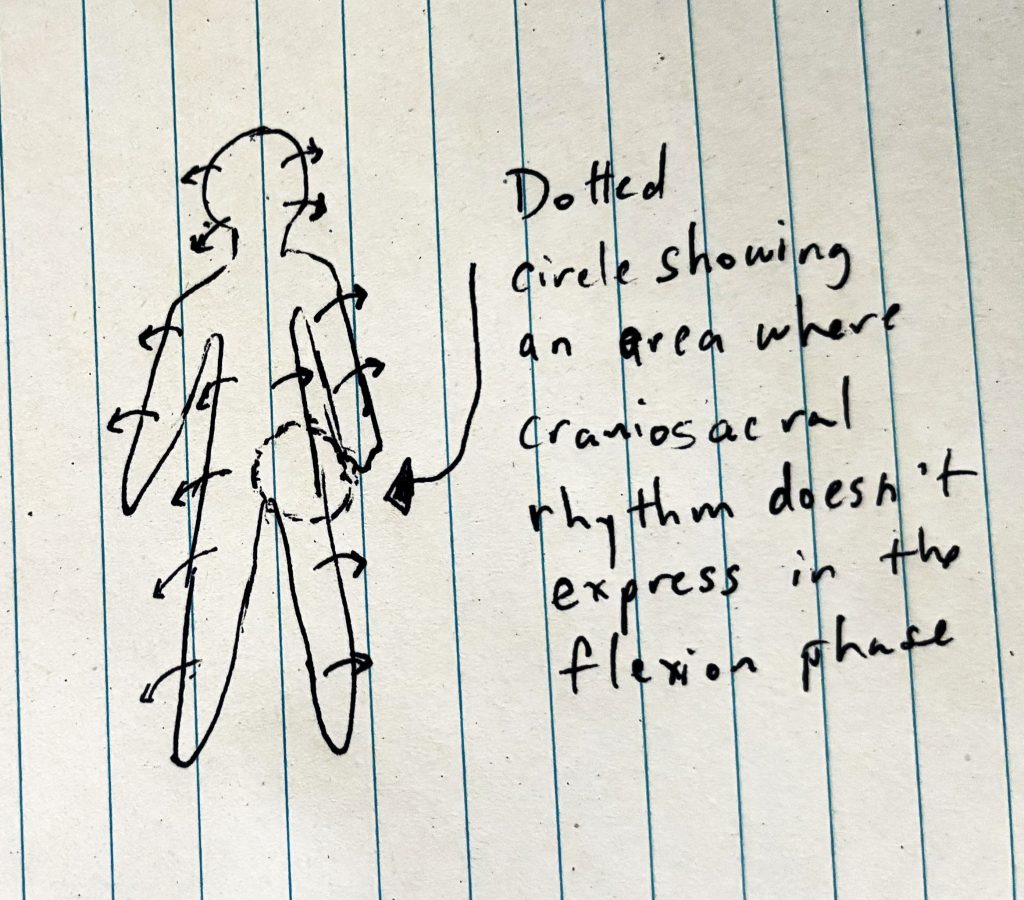 Dotted
circle showing
an area where
craniosacral
rhythm doesn't
express in the
flexion phase